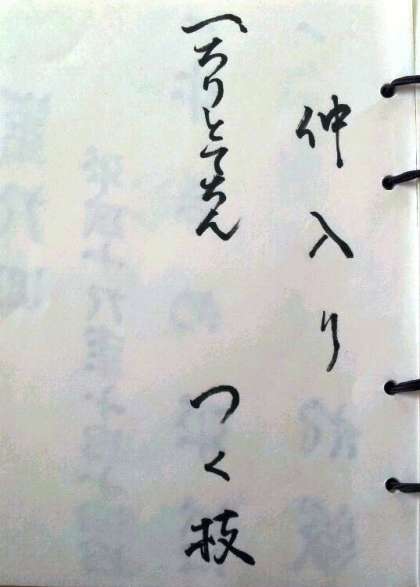 仲入り
〽ちりとてちん つく枝